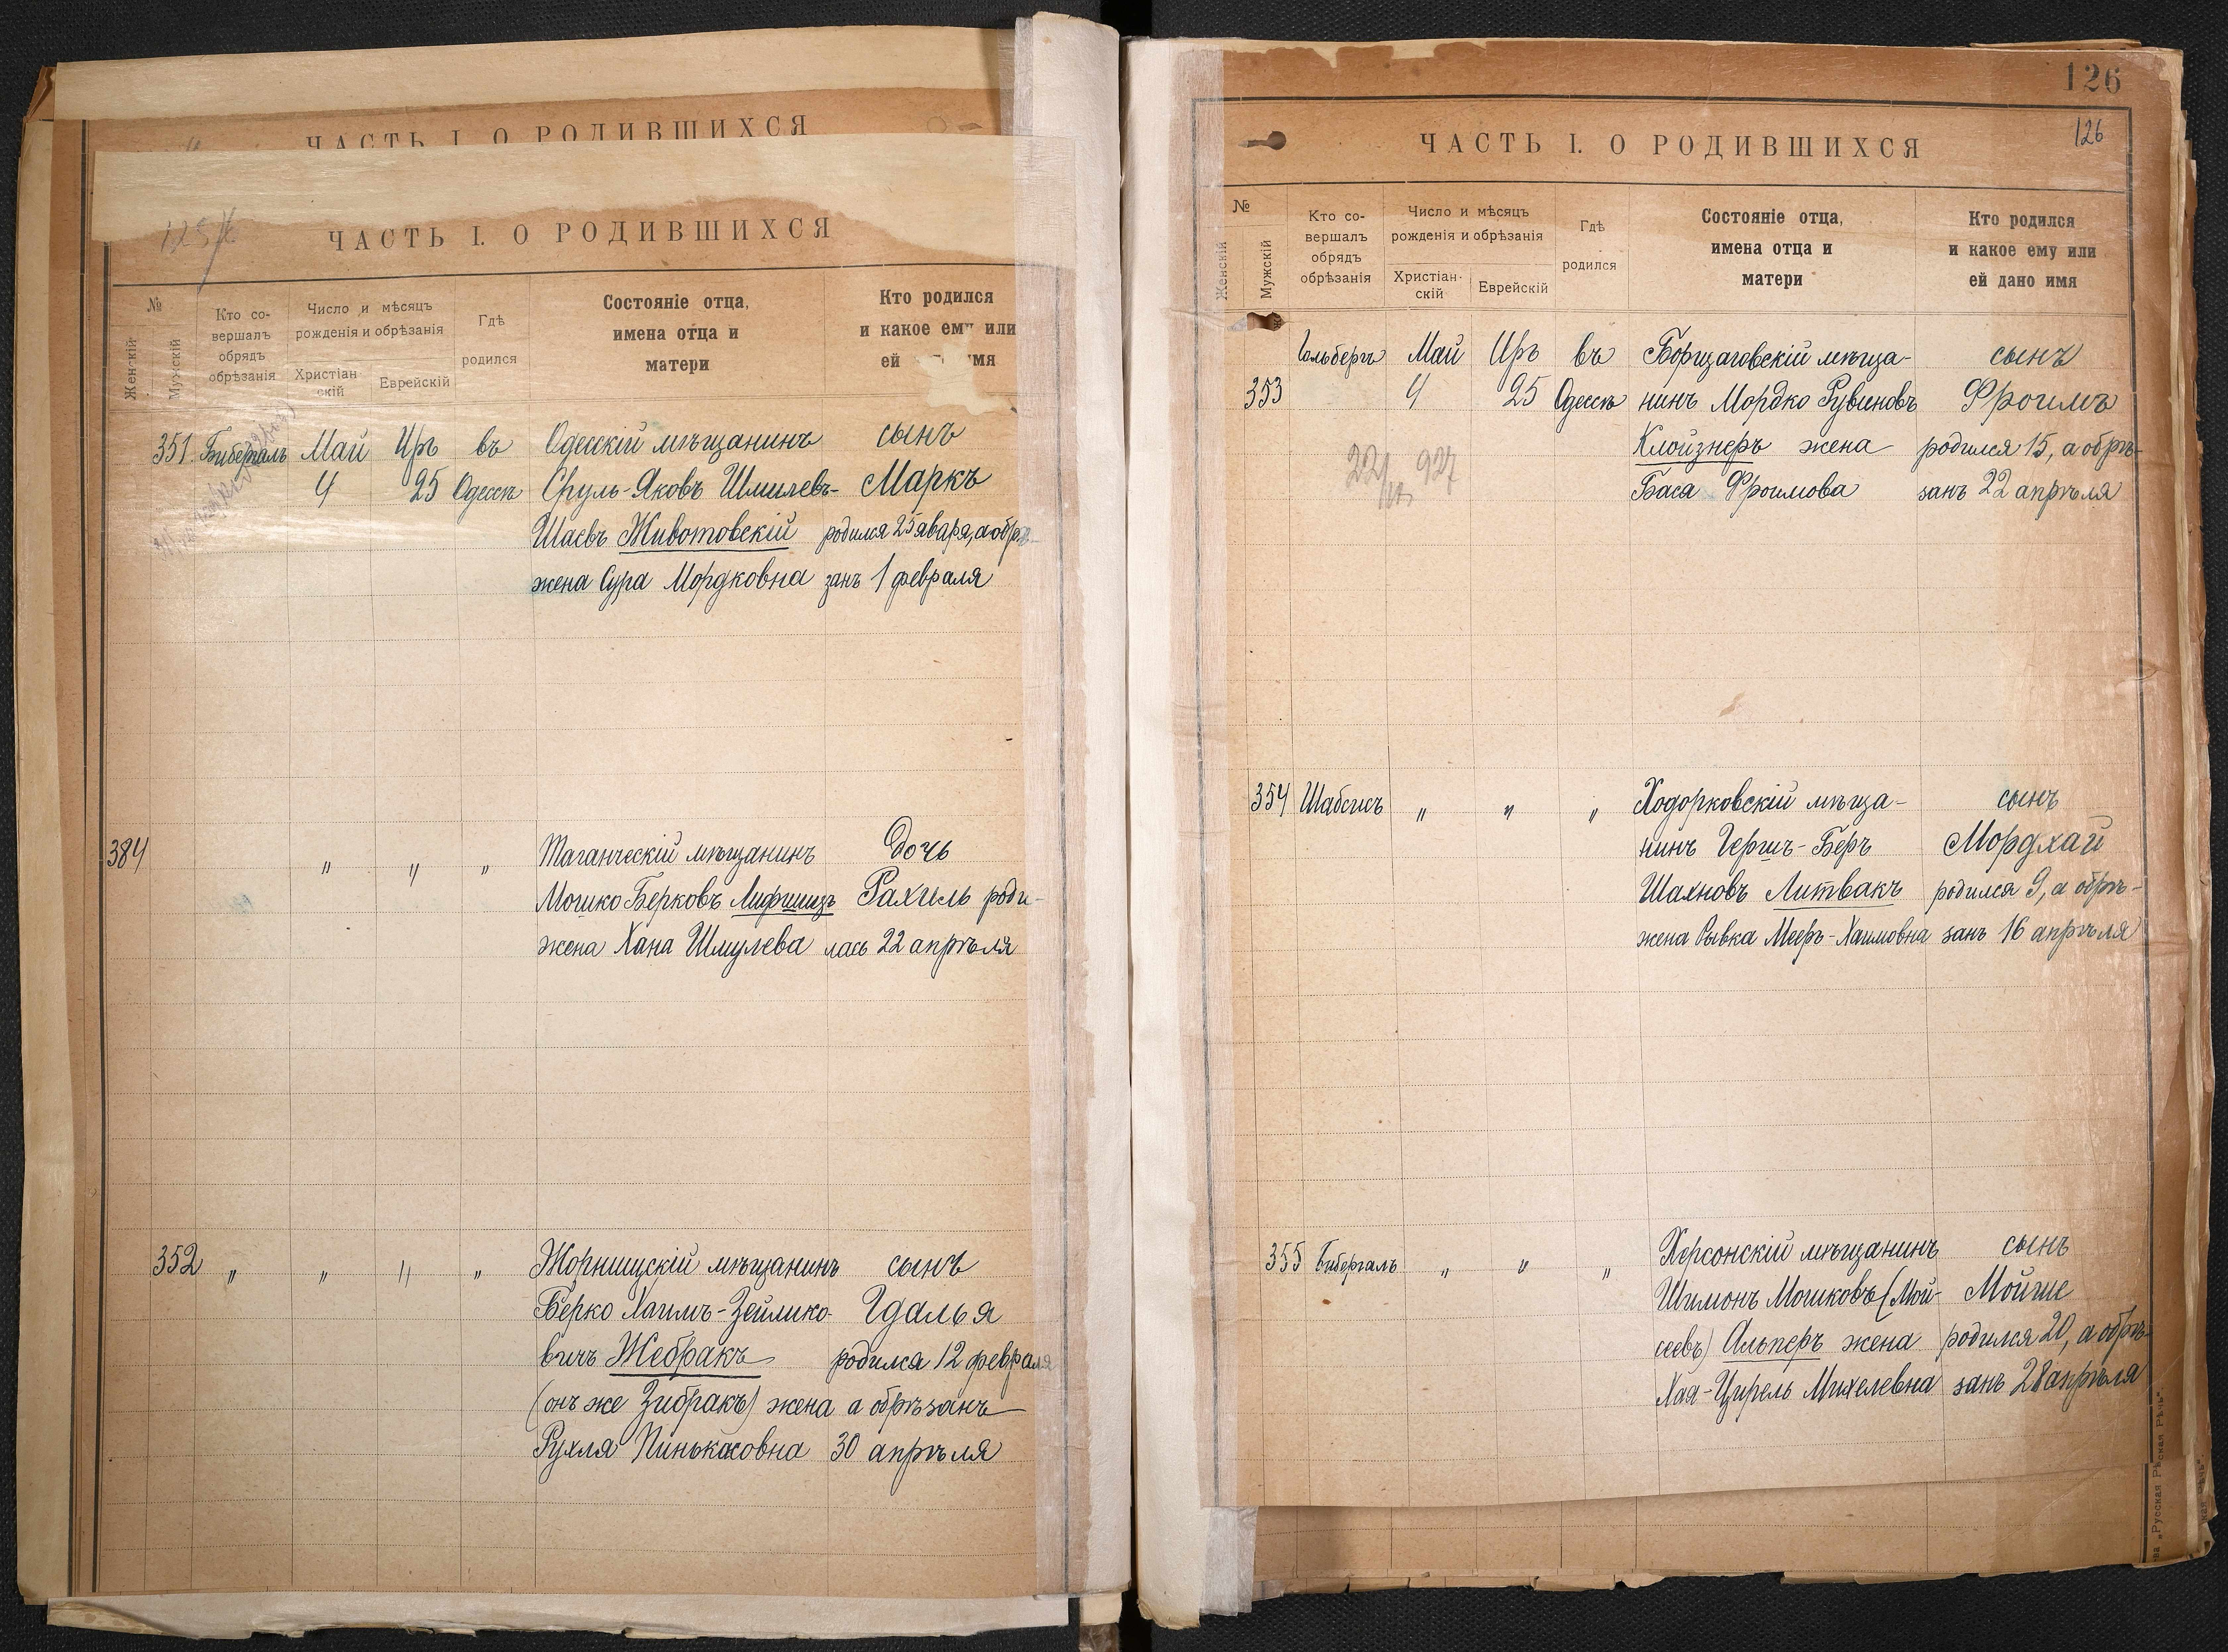 ЧАСТЬ I. О РОДИВШИХСЯ
ЧАСТЬ I. О РОДИВШИХСЯ
№
Женскій
Мужскій
Кто со-
вершалъ
обрядъ
обрѣзанія
Число и мѣсяцъ
рожденія и обрѣзанія
Христіан
скій
Еврейскій
Гдѣ
родился
Состояніе отца,
имена отца и
матери
Кто родился
и какое ему или
ей имя
351 Бибергаль Май Иръ въ Одесскій мѣщанинъ сынъ
4 25 Одессѣ Сруль-Яковъ Шмилевъ- Маркъ
Шаевъ Животовскій родился 25 января, а обрѣ-
жена Сура Мордковна занъ 1 февраля
384 " " " Таганческій мѣщанинъ Дочь
Мошко Берковъ Лифшицъ Рахиль роди-
жена Хана Шмулева лась 22 апрѣля
352 " " " " Жорнищскій мѣщанинъ сынъ
Берко Хаимъ-Зейлико- Гдалья
вичъ Жебракъ родился 12 февраля
(онъ же Зибракъ) жена а обрѣзанъ
Рухля Пинькасовна 30 апрѣля
126
126
ЧАСТЬ I. О РОДИВШИХСЯ
№
Женскій
Мужскій
Кто со-
вершалъ
обрядъ
обрѣзанія
Число и мѣсяцъ
рожденія и обрѣзанія
Христіан-
скій
Еврейскій
Гдѣ
родился
Состояніе отца,
имена отца и
матери
Кто родился
и какое ему или
ей дано имя
Гольбергъ Май Иръ въ Борщаговскій мѣща- сынъ
353 4 25 Одессѣ нинъ Мордко Рувиновъ Фроимъ
Клойзнеръ жена родился 15, а обрѣ-
Бася Фроимова занъ 22 апрѣля
354 Шабсисъ " " " Ходорковскій мѣща- сынъ
нинъ Гершъ-Беръ Мордхай
Шахновъ Литвакъ родился 9, а обрѣ-
жена Рывка Мееръ-Хаимовна занъ 16 апрѣля
355 Бибергаль " " " Херсонскій мѣщанинъ сынъ
Шимонъ Мошковъ (Мой- Мойше
сеевъ) Альперъ жена родился 20, а обрѣ-
Хая-Цирель Михелевна занъ 28 апрѣля
„Русская Рѣчь"